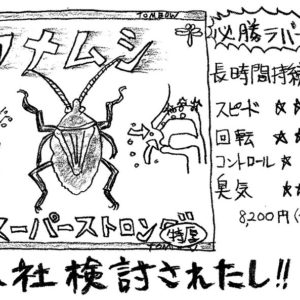 TOMBOW
必勝ラバ
長時間持続
スピード ★★
回転 ★★
コントロール ★
臭気 ★★
8,200円(
スーパーストロング
特厚
社検討されたし!!